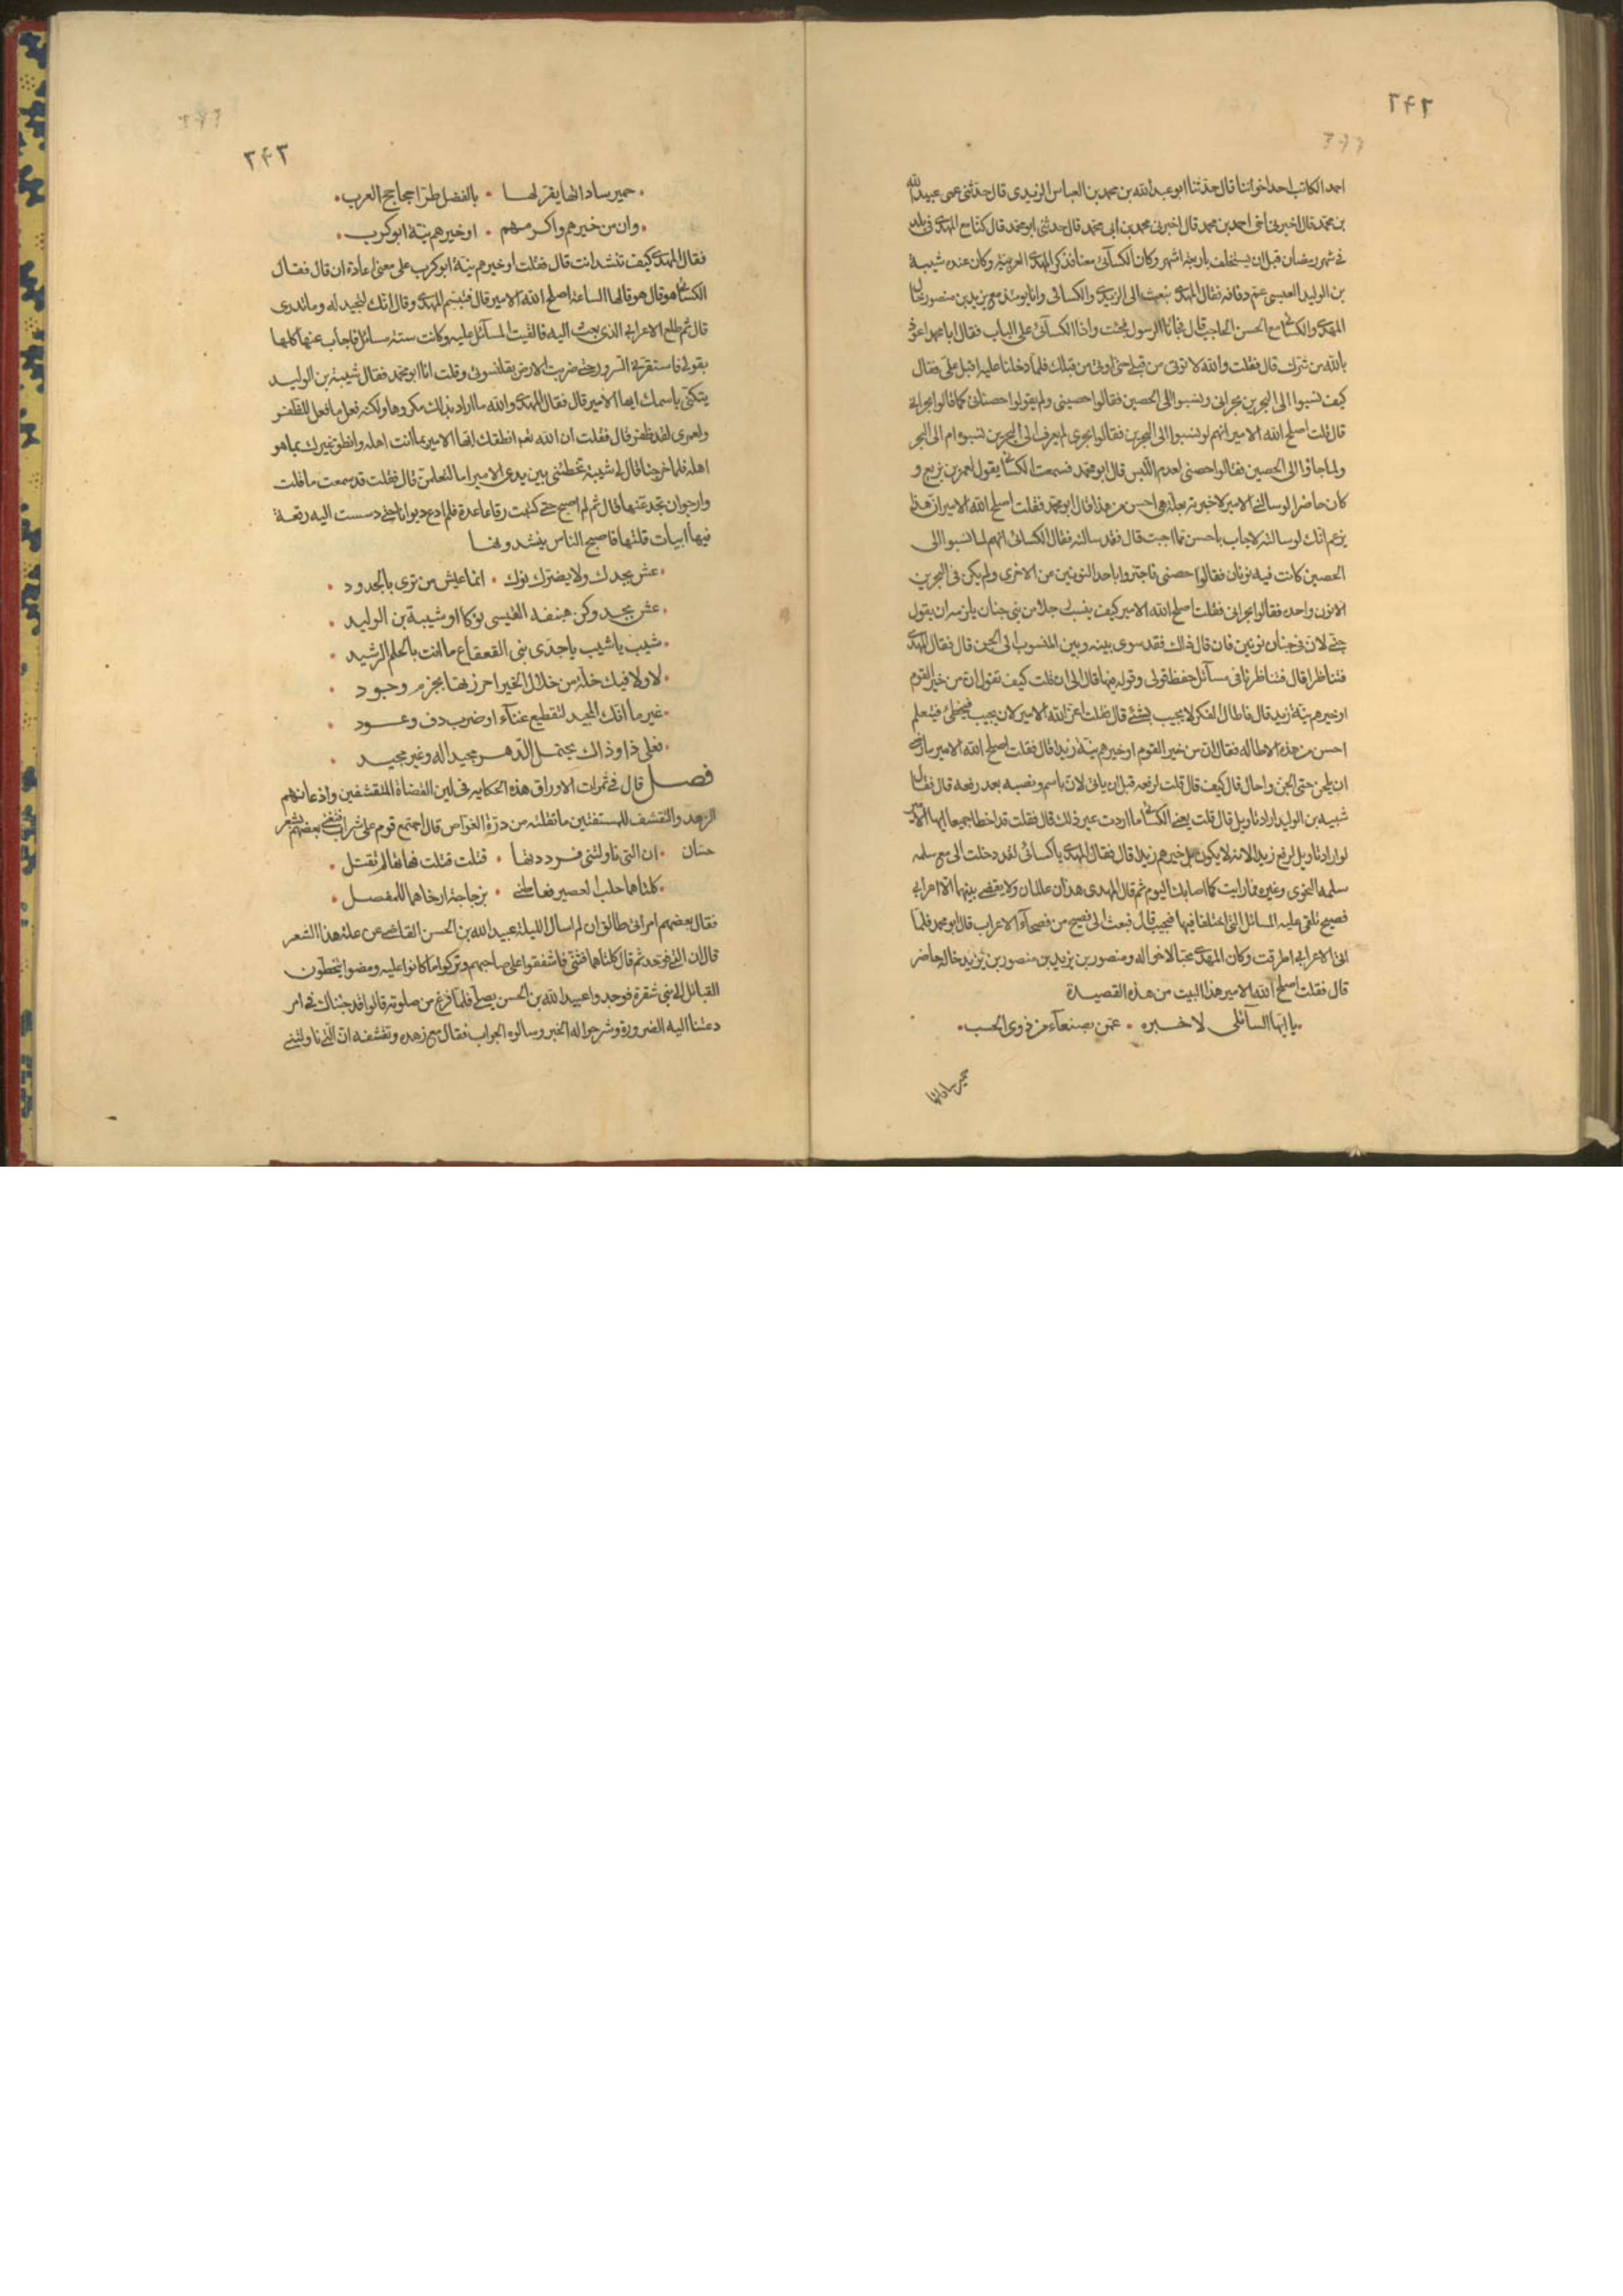 ٢٤٢
احمد الكاتب احد اخواننا قال حدثنا ابو عبد الله بن محمد بن العباس اليزيدى قال حدثنى عمى عبيد الله
بن محمد قال اخبرنى اخى احمد بن محمد قال اخبرنى محمد بن ابى محمد قال حدثنى ابو محمد قال كنا مع المهدى فى بلد
فى شهر رمضان قبل ان يستخلف باربعة اشهر وكان الكسائى معنا فذكر المهدى العربية وكان عنده شيبة
بن الوليد العبسى عم دفافه فقال المهدى نبعث الى اليزيدى والكسائى وانا يومئذ مع يزيد بن منصور خال
المهدى والكسائى مع الحسن الحاجب قال فجاءنا الرسول فجئت واذا الكسائى على الباب فقال ابا محمد اعوذ
بالله من شرك قال فقلت والله لا توتى من قبلى حتى اوتى من قبلك فلما دخلنا عليه اقبل على فقال
كيف نسبوا الى البحرين بحرانى ونسبوا الى الحصين فقالوا حصينى ولم يقولوا حصنانى كما قالوا بحرانى
قال قلت اصلح الله الامير انهم لو نسبوا الى البحرين فقالوا بحرى لم يعرف الى البحرين نسبوه ام الى البحر
ولما جاؤا الى الحصين فقالوا حصنى لعدم اللبس قال ابو محمد فسمعت الكسائى يقول لعمر بن بزيع و
كان حاضرا لو سالنى الامير لاخبرته بعلة هى احسن من هذا قال ابو محمد فقلت اصلح الله الامير ان هذا
يزعم انك لو سالته لاجاب باحسن مما اجبت قال فقد سالته فقال الكسائى انهم لما نسبوا الى
الحصين كانت فيه نونان فقالوا حصنى فاجتزوا باحد النونين من الاخرى ولم يكن فى البحرين
الا نون واحده فقالوا بحرانى فقلت اصلح الله الامير كيف ينسب رجلا من بنى جنان يلزمه ان يقول
جنى لان فى جنان نونين فان قال ذلك فقد سوى بينه وبين المنسوب الى الجن قال فقال المهدى
فتناظرا قال فتناظرنا فى مسائل حفظ قولى وقوله فيها قال الى ان قلت كيف تقول ان من خير القوم
او خيرهم بتة زيد قال فاطال الفكر لا يجيب بشئ قال فقلت اعز الله الامير لان يجيب فيخطئ فيتعلم
احسن من هذه الاطاله فقال ان من خير القوم او خيرهم بتة زيدا قال فقلت اصلح الله الامير ما رضى
ان يلحن حتى لحن واحال قال كيف قال قلت لرفعه قبل ان ياتى لان باسم ونصبه بعد رفعه قال فقال
شيبه بن الوليد اراد تاويل قال قلت يعنى الكسائى ما اردت غير ذلك قال فقلت قد اخطا جميعا ايها الامير
لو اراد تاويل لرفع زيدا لانه لا يكون بل خيرهم زيدا قال فقال المهدى يا كسائى لقد دخلت الى مع سلمه
سلمه النحوى وغيره فما رايت كما اصابك اليوم ثم قال المهدى هذان عالمان ولا يقضى بينهما الا اعرابى
فصيح تلقى عليه المسائل التى اختلفا فيها فيجيب قال فبعث الى فصيح من فصحاء الاعراب قال ابو محمد فلما
اتى الاعرابى اطرقت وكان المهدى محبا لاخواله ومنصور بن يزيد بن منصور بن يزيد خاله حاضر
قال فقلت اصلح الله الامير هذا البيت من هذه القصيدة
يا ايها السائلى لاخبره عمن بصنعاء من ذوى الحسب
حمير ساداتها
٢٤٣
حمير ساداتها يقر لها بالفضل طرا جحاجح العرب
وان من خيرهم واكرمهم او خيرهم بتة ابو كرب
فقال المهدى كيف تنشد انت قال فقلت او خيرهم بتة ابو كرب على معنى اعادة ان قال فقال
الكسائى هو قال هو قالها الساعة اصلح الله الامير قال فتبسم المهدى وقال انك لتجيد له وما تدرى
قال ثم طلع الاعرابى الذى بعث اليه فالقيت المسائل عليه وكانت ستة مسائل فاجاب عنها كلها
بقولى فاستفزنى السرور حتى ضربت الارض بقلنسوتى وقلت انا ابو محمد فقال شيبة بن الوليد
يتكنى باسمك ايها الامير قال فقال المهدى والله ما اراد بذلك مكروها ولكنه فعل ما فعل للظفر
ولعمرى لقد ظفر قال فقلت ان الله نعم انطقك ايها الامير بما انت اهله وانطق غيرك بما هو
اهله فلما خرجنا قال لى شيبة تخطئنى بين يدى الامير اما لتعلمن قال فقلت قد سمعت ما قلت
وارجو ان تجد غبها قال ثم لم اصبح حتى كتبت رقاعا عدة فلم ادع ديوانا حتى دسست اليه رقعة
فيها ابيات قلتها فاصبح الناس ينشدونها
عش بجدك ولا يضرك نوك انما عيش من ترى بالجدود
عش بجد وكن هبنقه القيسى نوكا او شيبة بن الوليد
شيب يا شيب يا جدى بنى القعقاع ما انت بالحلم الرشيد
لا ولا فيك خلة من خلال الخير احرزتها بحزم وجود
غير ما انك المجيد لتقطيع غناء او ضرب دف وعود
فعلى ذا وذاك يحتمل الدهر مجيدا له وغير مجيد
فصل قال فى ثمرات الاوراق هذه الحكايه فى لين القضاة المتقشفين واذعانهم
الزهد والتقشف للمستفتين ما نقلته من درة الغواص قال اجتمع قوم على شراب فتغنى بعضهم بشعر
حسان ان التى ناولتنى فرددتها قتلت قتلت فهاتها لم تقتل
كلتاهما حلب العصير فعاطنى بزجاجة ارخاهما للمفصل
فقال بعضهم امراتى طالق ان لم اسال الليلة عبيد الله بن الحسن القاضى عن علة هذا الشعر
قال ان التى فوحد ثم قال كلتاهما فثنى فاشفقوا على صاحبهم وتركوا ما كانوا عليه ومضوا يتخطون
القبائل الى بنى شقرة فوجدوا عبيد الله بن الحسن يصلى فلما فرغ من صلوته قالوا قد جئناك فى امر
دعتنا اليه الضرورة وشرحوا له الخبر وسالوه الجواب فقال مع زهده وتقشفه ان التى ناولتنى